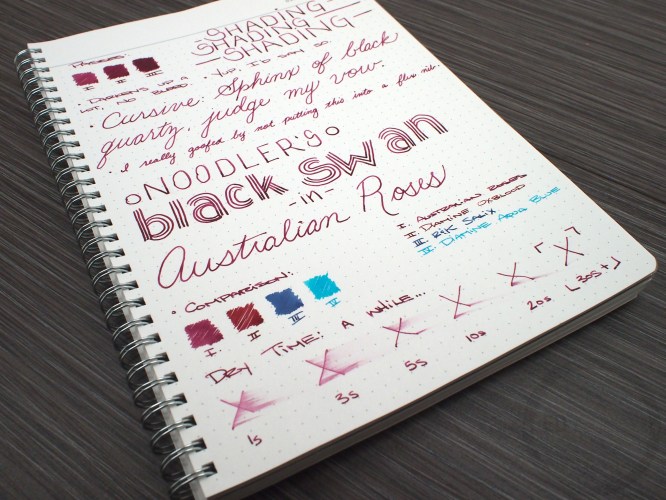 SHADING
SHADING
SHADING
PASSES:
I II III
• DARKENS UP A LOT, NO BLEED.
• YUP, I'D SAY SO.
• Cursive: Sphinx of black
quartz, judge my vow.
• I really goofed by not putting this into a flex nib.
NOODLER'S
black swan
-in-
Australian Roses
I. AUSTRALIAN ROSES
II. DIAMINE OXBLOOD
III. R&K SALIX
IV. DIAMINE AQUA BLUE
• COMPARISON:
I II III IV
DRY TIME: A WHILE...
X X X X X X
1s 3s 5s 10s 20s 30s+